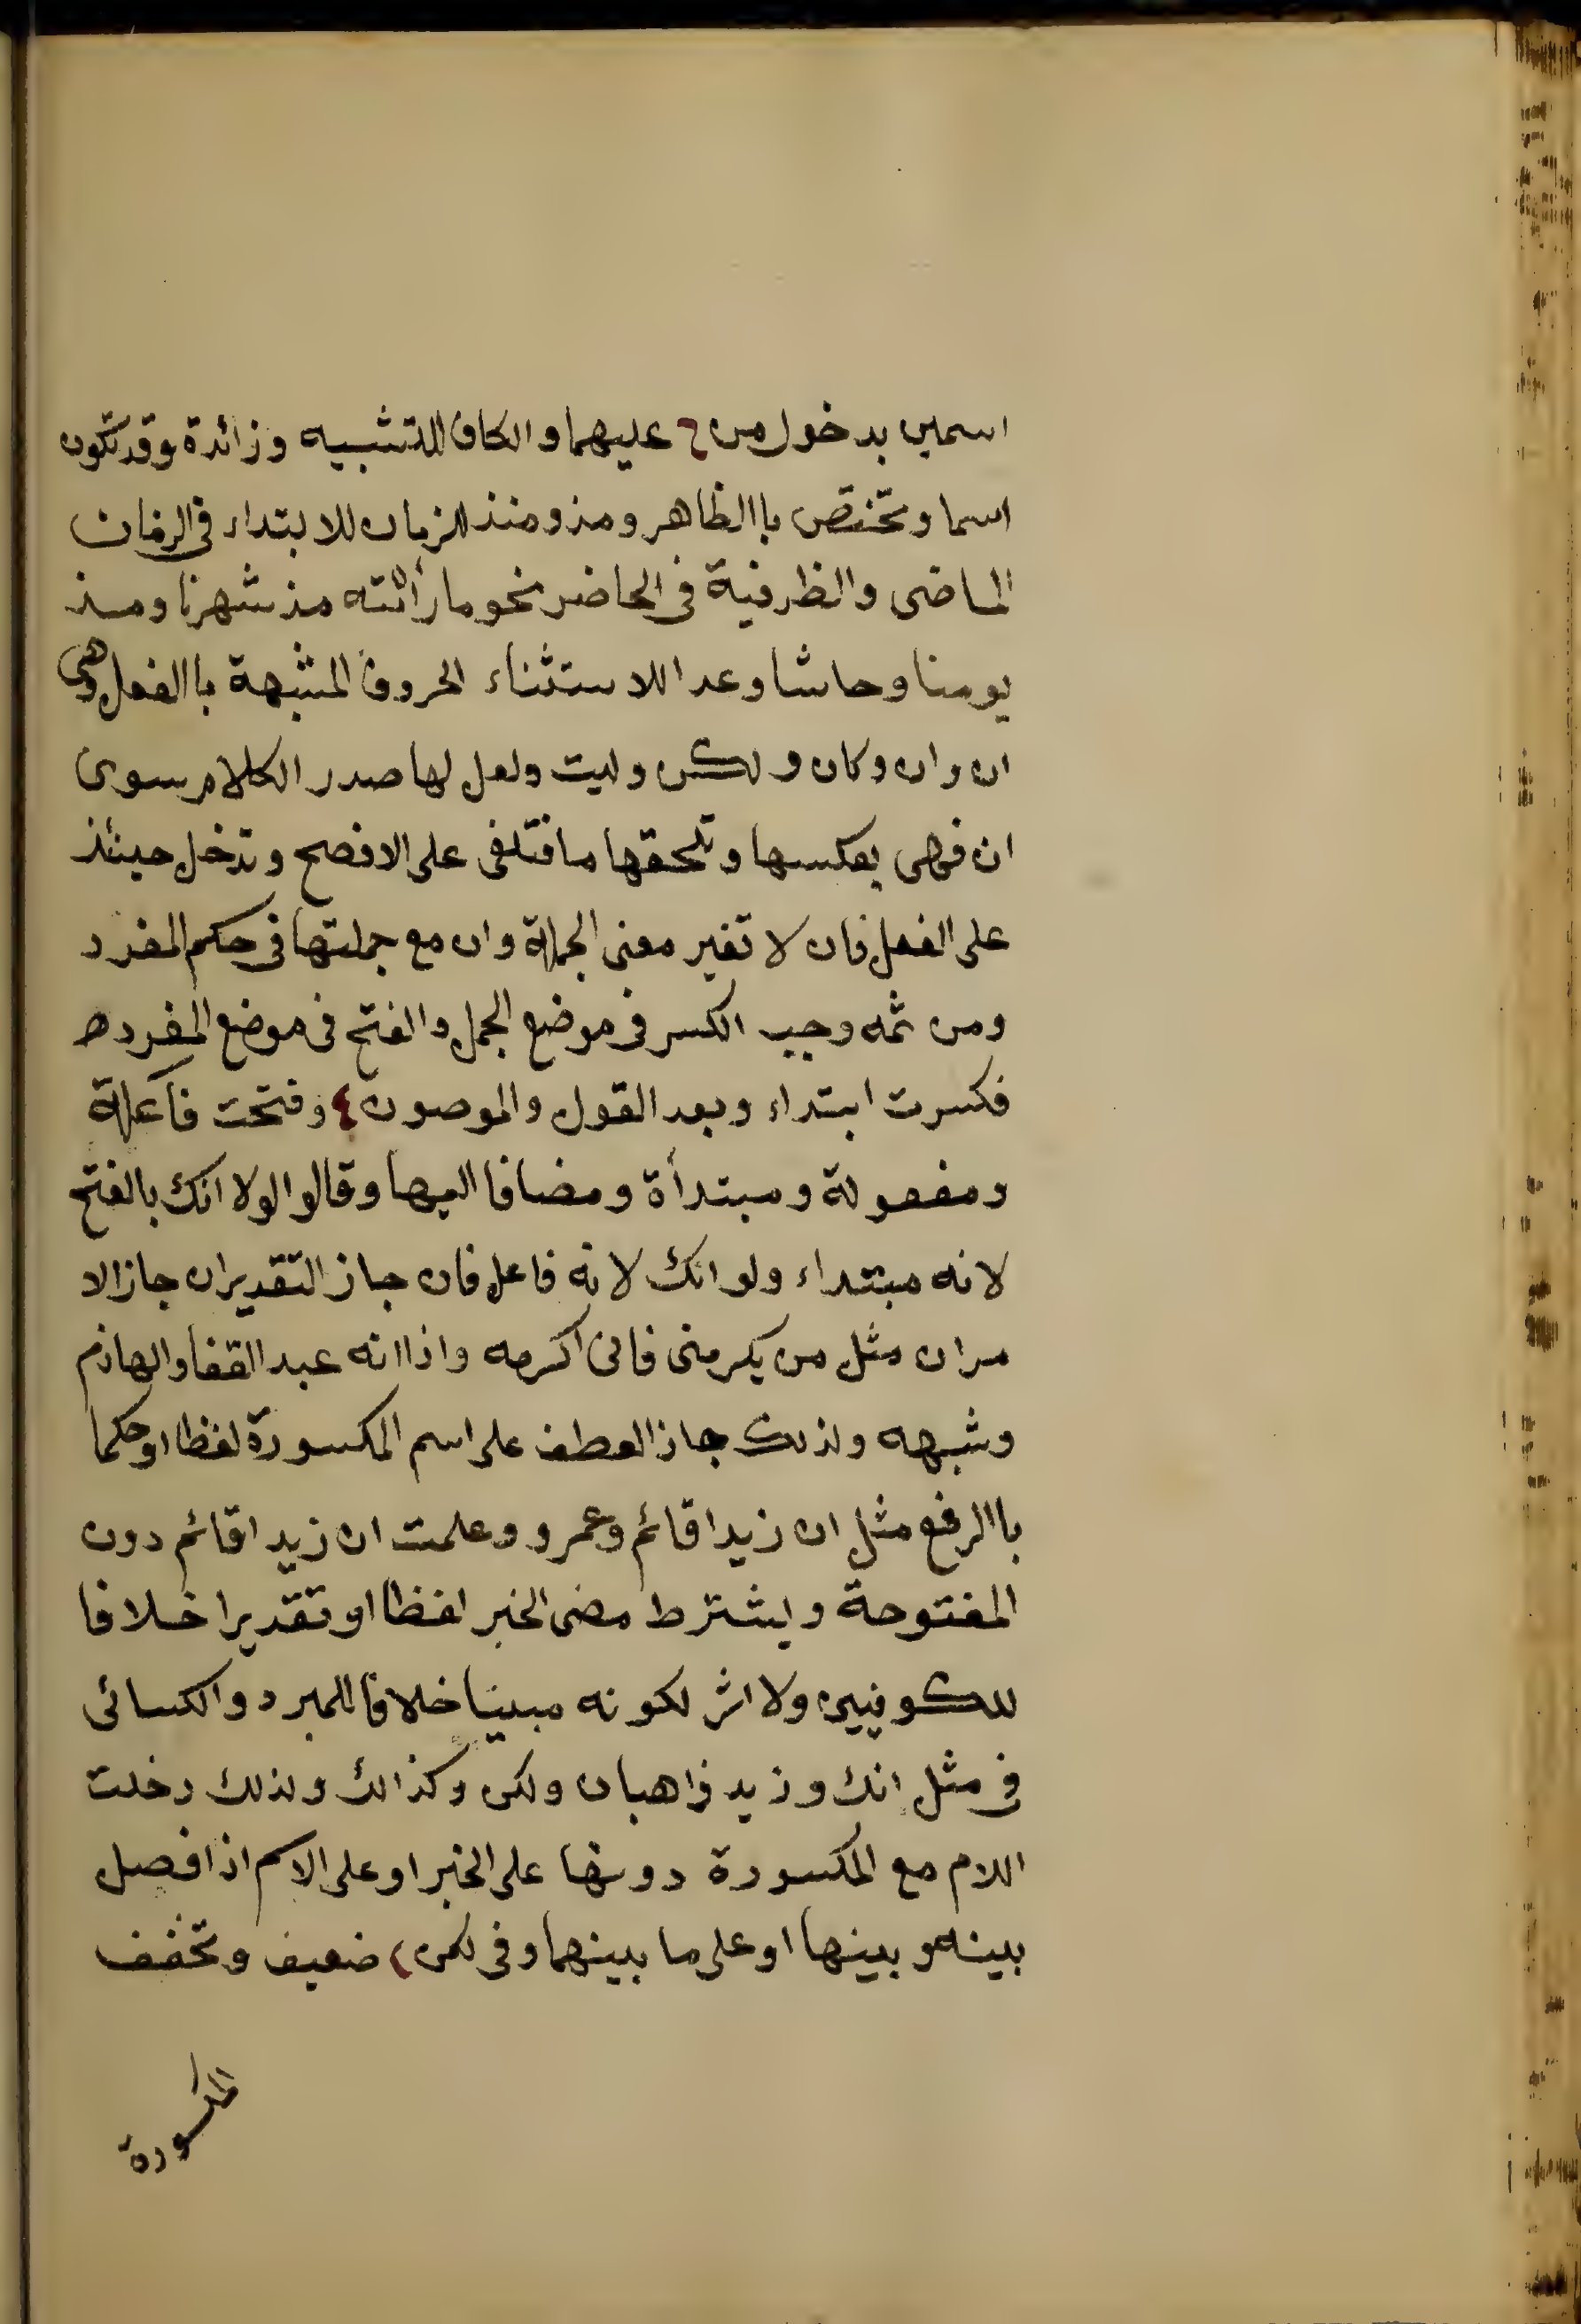 اسمين بدخول من عليهما والكاف للتشبيه وزائدة وقد تكون
اسما وتختص باالظاهر ومذ ومنذ للزمان للابتداء فى الزمان
الماضى والظرفية فى الحاضر نحو ما رأئته مذ شهرنا ومنذ
يومنا وحاشا وعدا للاستثناء الحروف المشبهة باالفعل وهى
ان وان وكان ولكن وليت ولعل لها صدر الكلام سوى
ان فهى بعكسها وتلحقها ما فتلغى على الافصح وتدخل حينئذ
على الفعل فان لا تغير معنى الجملة وان مع جملتها فى حكم المفرد
ومن ثمه وجب الكسر فى موضع الجمل والفتح فى موضع المفرد
فكسرت ابتداء وبعد القول والموصون وفتحت فاعلة
ومفعولة ومبتدأة ومضافا اليها وقالوا لولا انك بالفتح
لانه مبتداء ولو انك لانه فاعل فان جاز التقديران جاز الا
مران مثل من يكرمنى فانى اكرمه واذا انه عبد القفا والهازم
وشبهه ولذلك جاز العطف على اسم المكسورة لفظا او حكما
باالرفع مثل ان زيدا قائم وعمرو وعلمت ان زيدا قائم دون
المفتوحة ويشترط مضى الخبر لفظا او تقديرا خلافا
للكوفيين ولا اثر لكونه مبنيا خلافا للمبرد والكسائى
فى مثل انك وزيد ذاهبان ولكن وكذالك ولذلك دخلت
اللام مع المكسورة دونها على الخبر او على الاسم اذا فصل
بينه وبينها او على ما بينهما وفى لكن ضعيف وتخفف
المكسورة